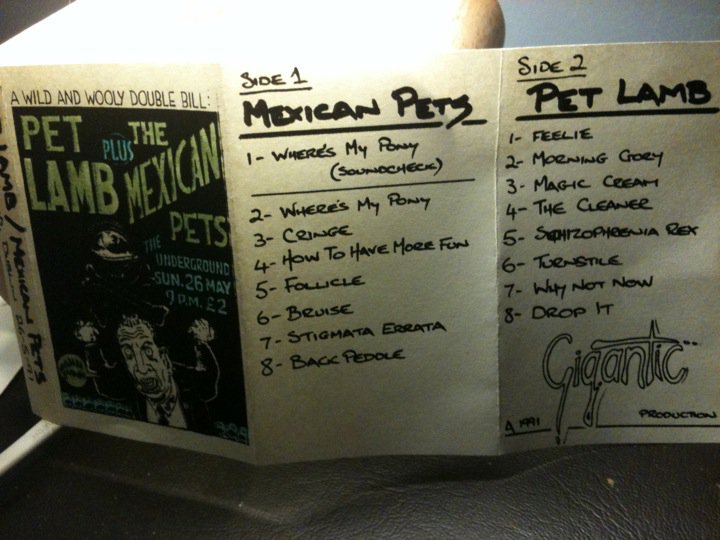 LAMB / MEXICAN PETS
DUBLIN 26-5-91
A WILD AND WOOLY DOUBLE BILL:
PET
LAMB
PLUS
THE
MEXICAN
PETS
THE
UNDERGROUND
SUN. 26 MAY
7 P.M. £2
SIDE 1
MEXICAN PETS
1- WHERE'S MY PONY
(SOUNDCHECK)
2- WHERE'S MY PONY
3- CRINGE
4- HOW TO HAVE MORE FUN
5- FOLLICLE
6- BRUISE
7- STIGMATA ERRATA
8- BACK PEDDLE
SIDE 2
PET LAMB
1- FEELIE
2- MORNING GORY
3- MAGIC CREAM
4- THE CLEANER
5- SCHIZOPHRENIA REX
6- TURNSTILE
7- WHY NOT NOW
8- DROP IT
A 1991
Gigantic
PRODUCTION